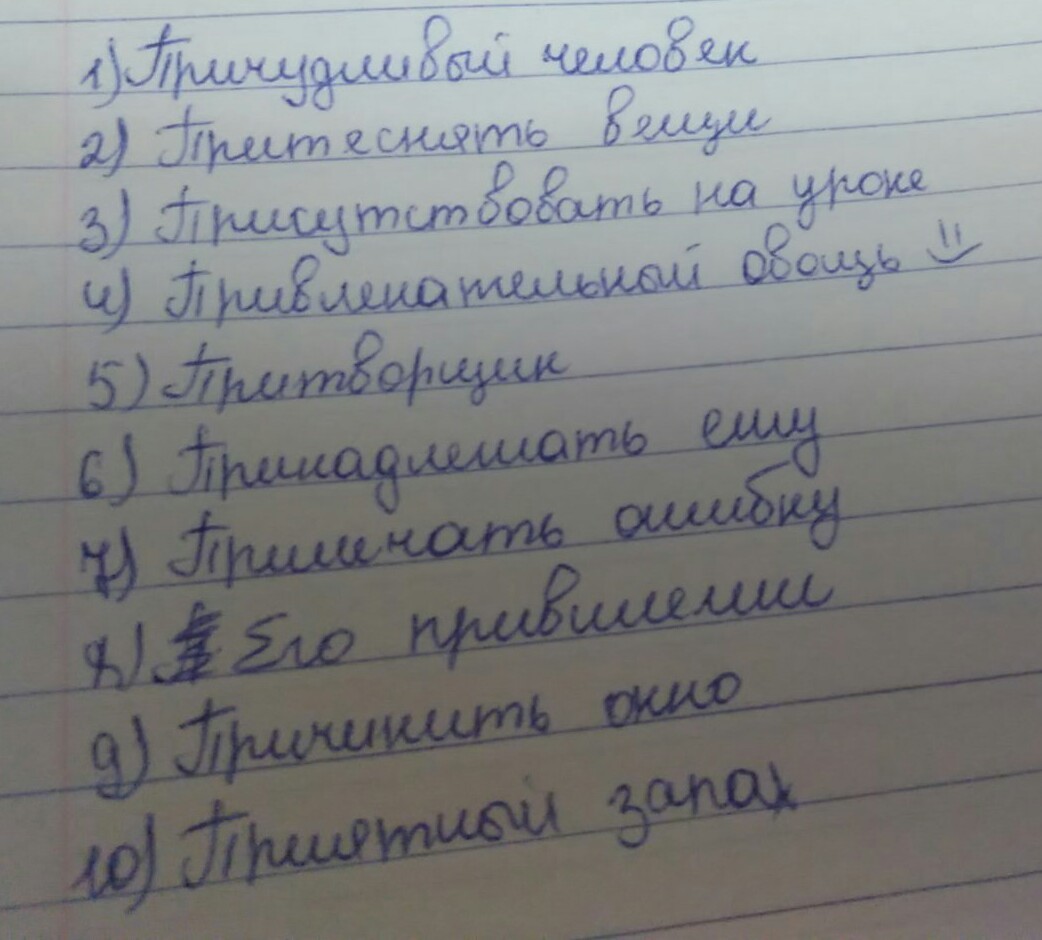 1) Причудливый человек
2) Притеснять вещи
3) Присутствовать на уроке
4) Привлекательный овощь
5) Притворщик
6) Принадлежать ему
7) Примечать ошибку
8) Его привилегии
9) Причинить окно
10) Приятный запах